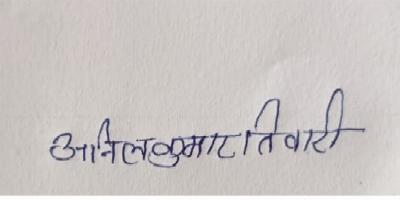 अनिलकुमार तिवारी